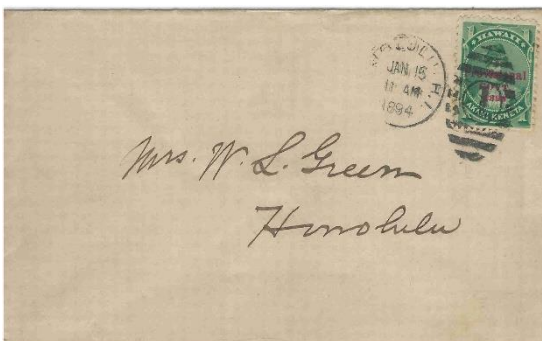 HONOLULU. H.I.
JAN 15
11 AM
1894
HAWAII
Provisional
AKAHI KENETA
Mrs. W. L. Green
Honolulu